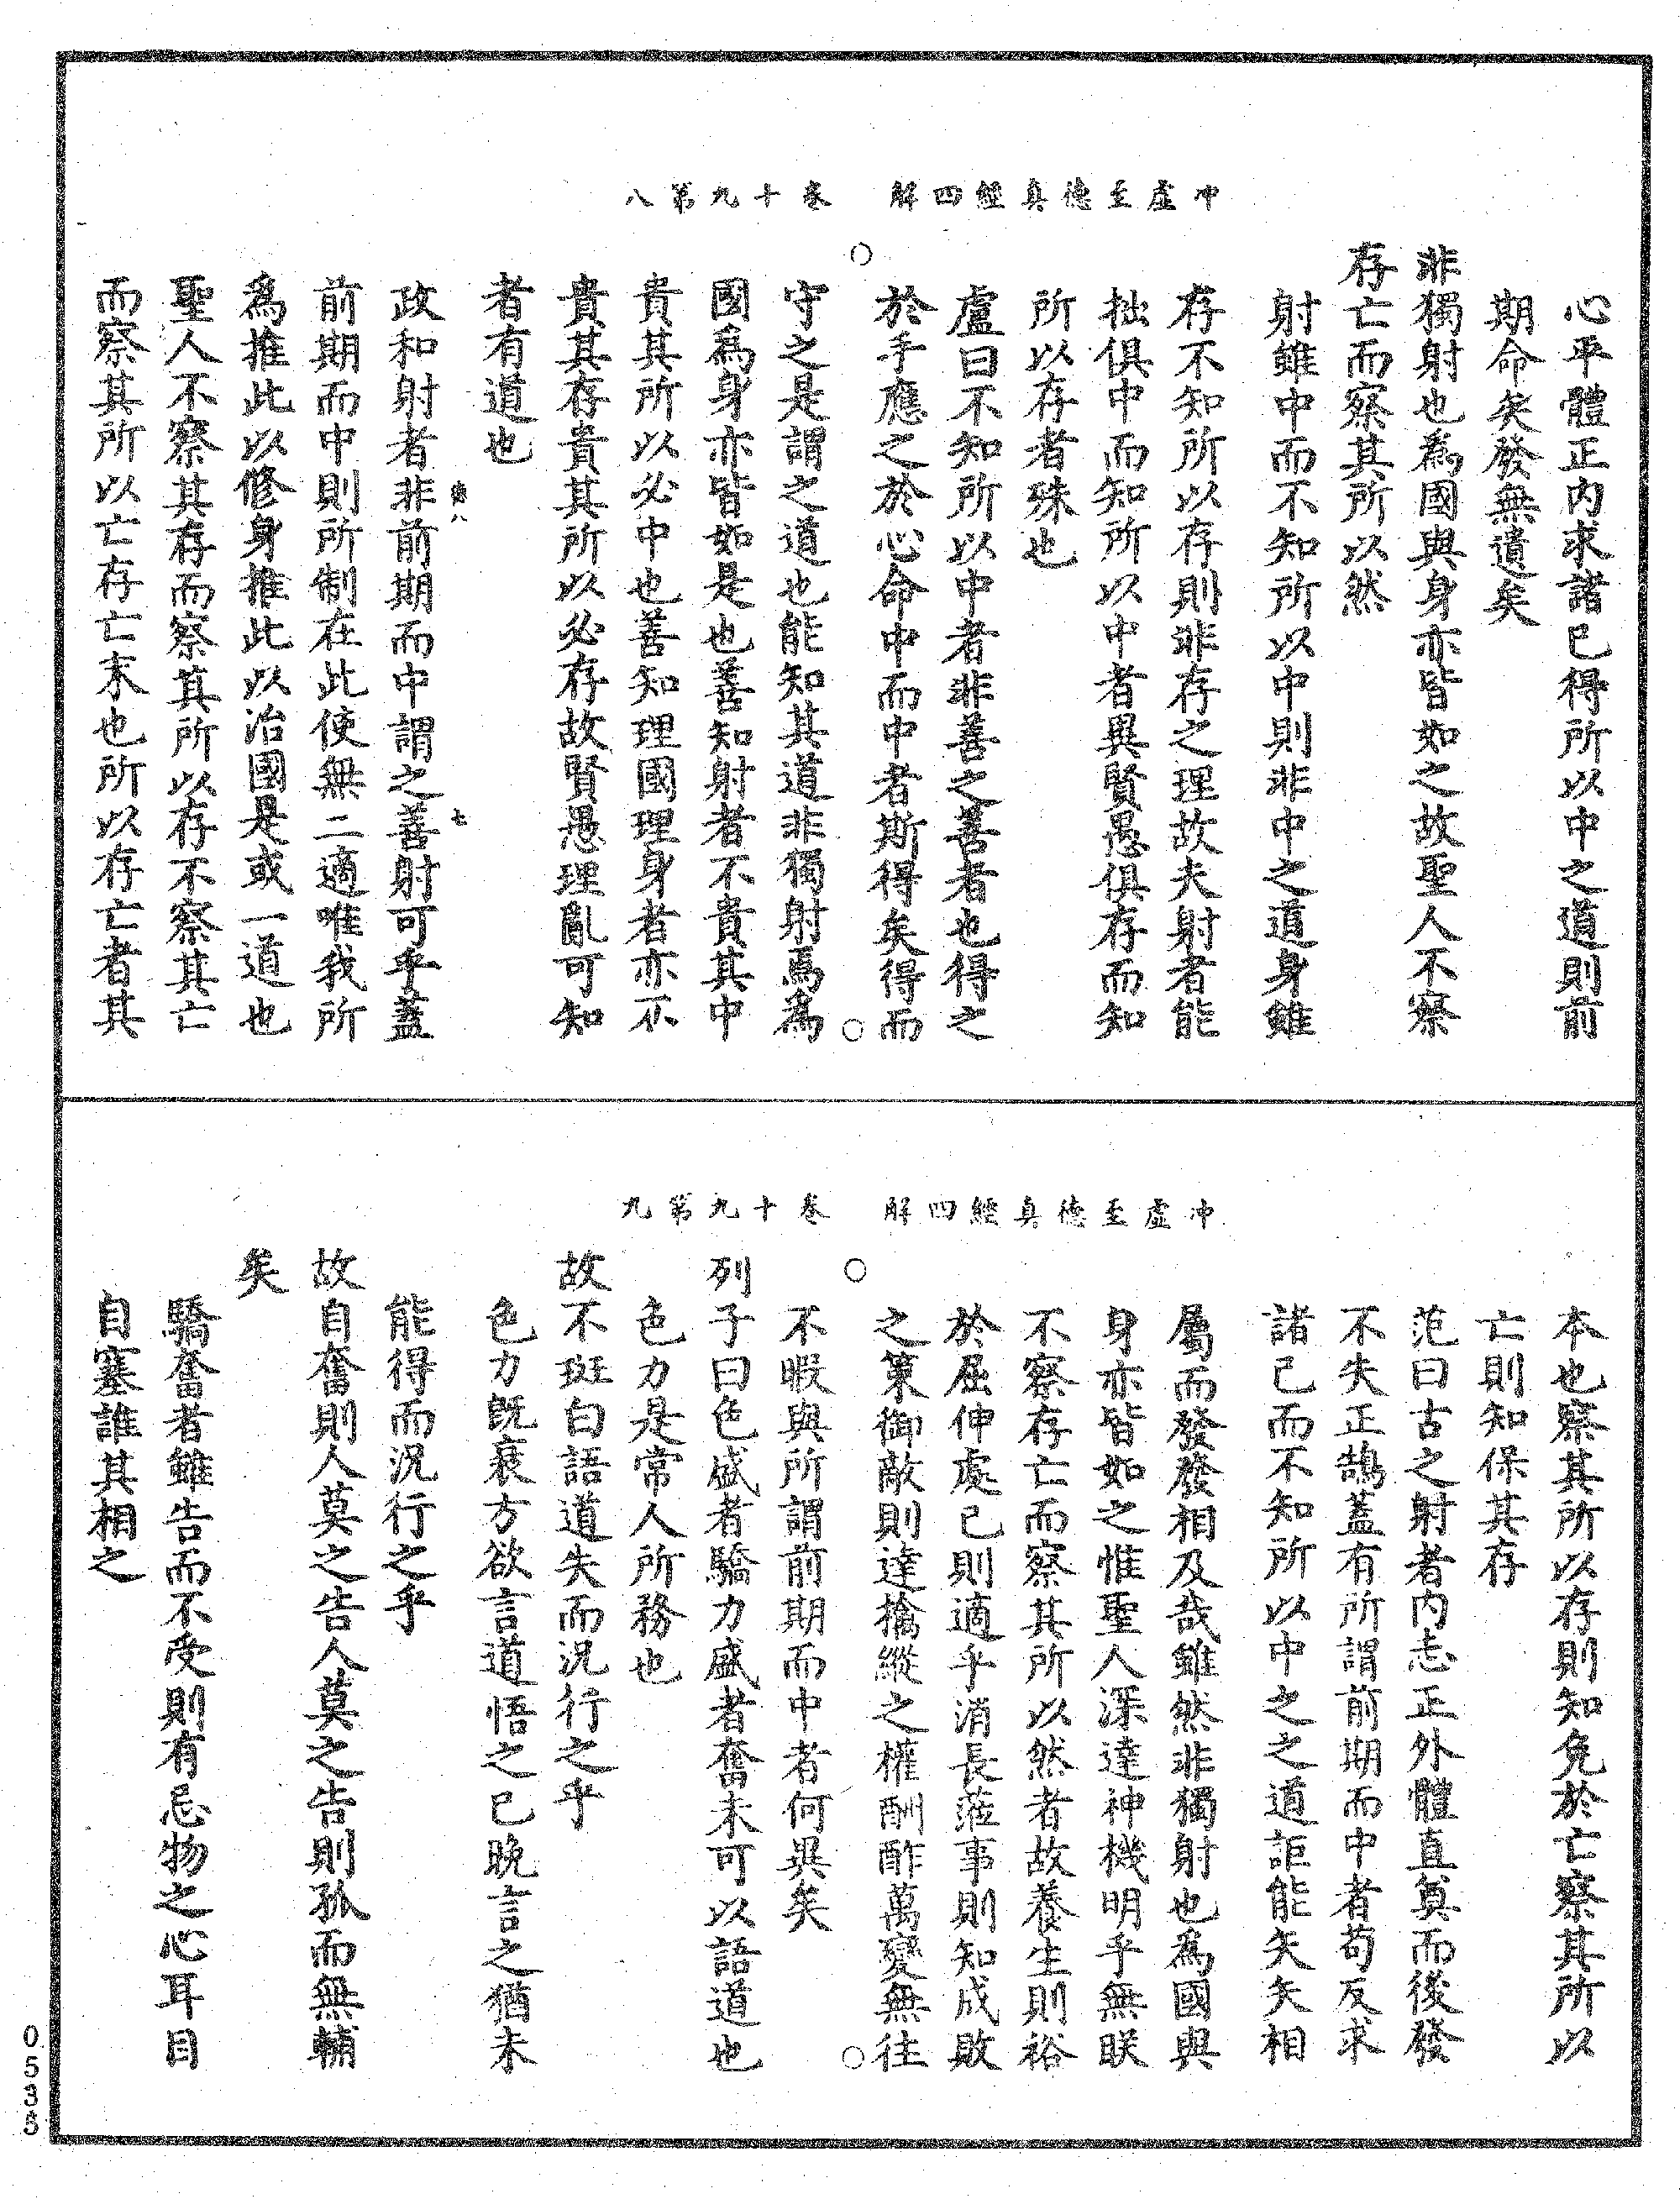 冲虛至德真經四解　卷十九第八
心平體正內求諸已得所以中之道則前
期命矢發無遺矣
非獨射也爲國與身亦皆如之故聖人不察
存亡而察其所以然
射雖中而不知所以中則非中之道身雖
存不知所以存則非存之理故夫射者能
拙俱中而知所以中者異賢愚俱存而知
所以存者殊也
盧曰不知所以中者非善之善者也得之
於手應之於心命中而中者斯得矣得而
守之是謂之道也能知其道非獨射焉爲
國爲身亦皆如是也善知射者不貴其中
貴其所以必中也善知理國理身者亦不
貴其存貴其所以必存故賢愚理亂可知
者有道也
政和射者非前期而中謂之善射可乎蓋
前期而中則所制在此使無二適唯我所
爲推此以修身推此以治國是或一道也
聖人不察其存而察其所以存不察其亡
而察其所以亡存亡末也所以存亡者其
冲虛至德真經四解　卷十九第九
本也察其所以存則知免於亡察其所以
亡則知保其存
范曰古之射者內志正外體直莫而後發
不失正鵠蓋有所謂前期而中者苟反求
諸已而不知所以中之之道詎能矢矢相
屬而發發相及哉雖然非獨射也爲國與
身亦皆如之惟聖人深達神機明乎無眹
不察存亡而察其所以然者故養生則裕
於屈伸處已則適乎消長蒞事則知成敗
之策御敵則達擒縱之權酬酢萬變無往
不暇與所謂前期而中者何異矣
列子曰色盛者驕力盛者奮未可以語道也
色力是常人所務也
故不斑白語道失而況行之乎
色力旣衰方欲言道悟之已晚言之猶未
能得而況行之乎
故自奮則人莫之告人莫之告則孤而無輔
矣
驕奮者雖告而不受則有忌物之心耳目
自塞誰其相之
0535